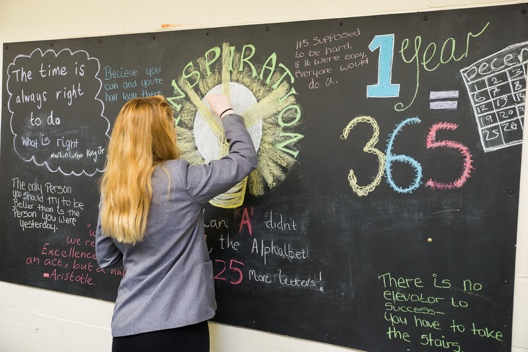 The time is
always right
to do
What is right
Martin Luther King Jr
Believe you
can and you're
half way there
INSPIRATION
It's supposed
to be hard,
if it were easy,
everyone would
do it.
1 year
=
365
December
The only Person
you should try to be
Better than is the
Person you were
yesterday.
we re
Excellence
an act, but a
-Aristotle.
an 'A' didnt
, the Alphabet!
25 more letters!
There is no
elevator to
success-
You have to take
the stairs